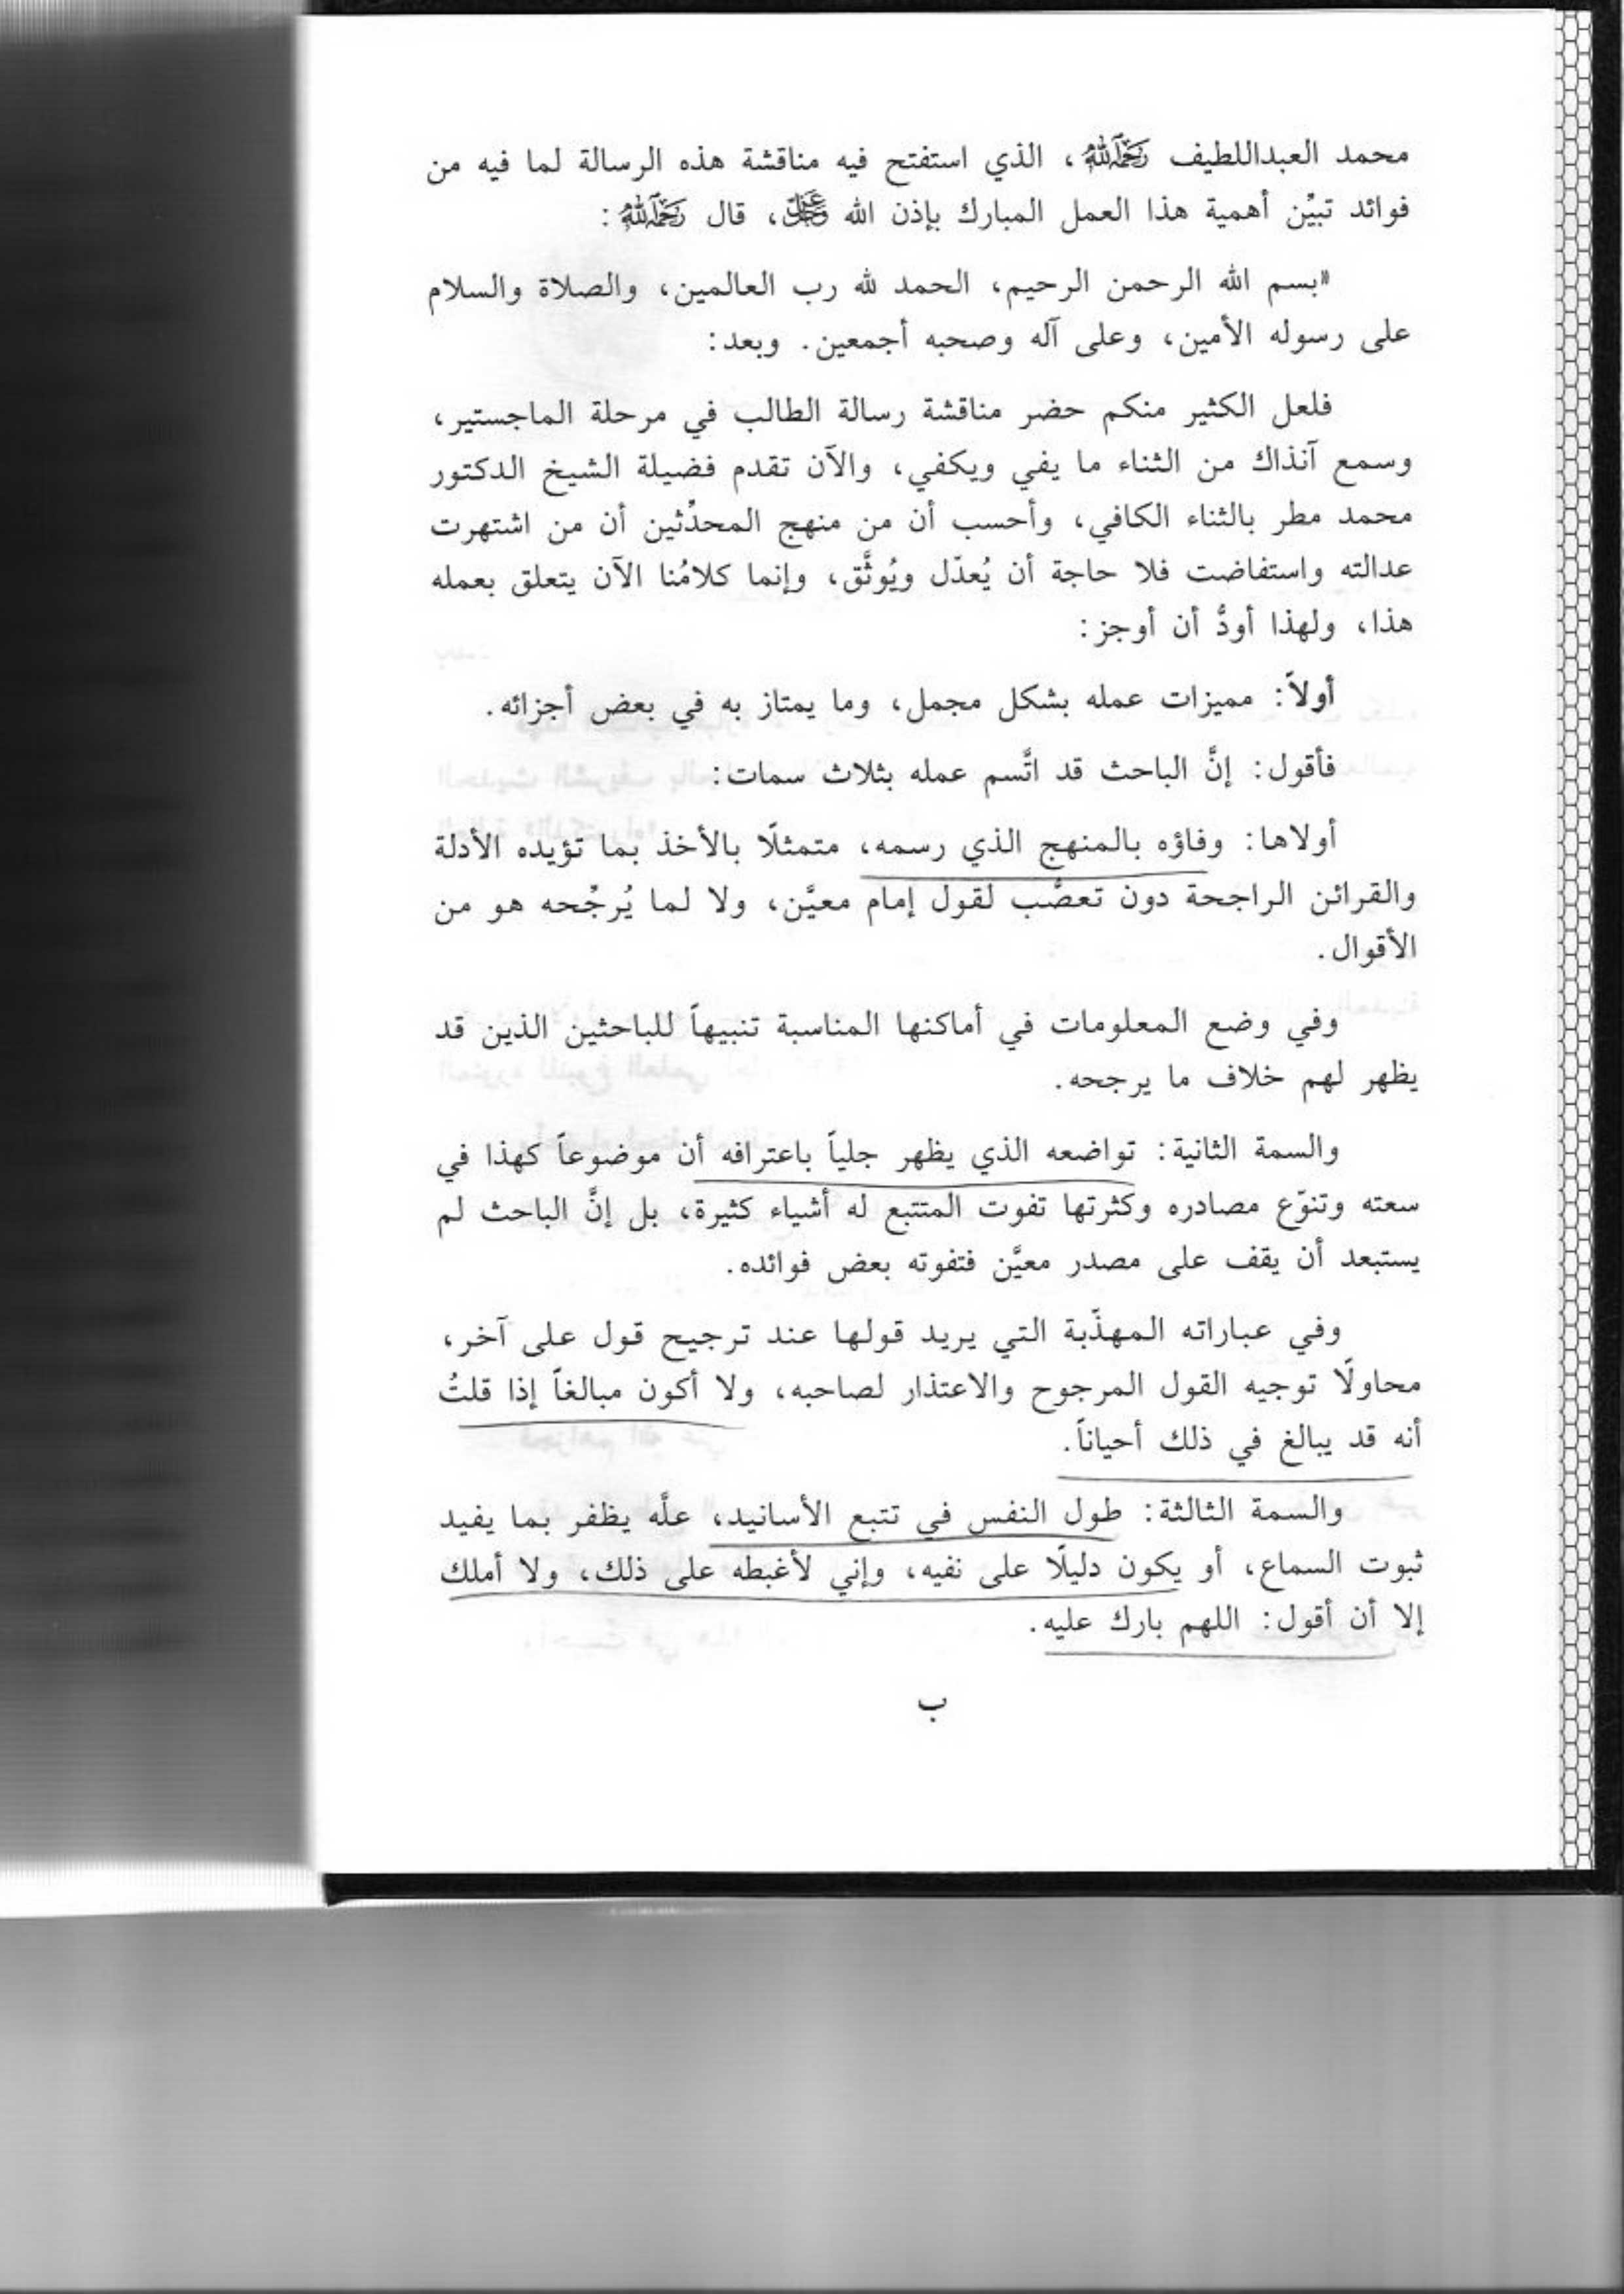 محمد العبداللطيف رَحِمَهُ اللَّهُ، الذي استفتح فيه مناقشة هذه الرسالة لما فيه من
فوائد تبيِّن أهمية هذا العمل المبارك بإذن الله عَزَّ وَجَلَّ، قال رَحِمَهُ اللَّهُ:
«بسم الله الرحمن الرحيم، الحمد لله رب العالمين، والصلاة والسلام
على رسوله الأمين، وعلى آله وصحبه أجمعين. وبعد:
فلعل الكثير منكم حضر مناقشة رسالة الطالب في مرحلة الماجستير،
وسمع آنذاك من الثناء ما يفي ويكفي، والآن تقدم فضيلة الشيخ الدكتور
محمد مطر بالثناء الكافي، وأحسب أن من منهج المحدِّثين أن من اشتهرت
عدالته واستفاضت فلا حاجة أن يُعدّل ويُوثَّق، وإنما كلامُنا الآن يتعلق بعمله
هذا، ولهذا أودُّ أن أوجز:
أولاً: مميزات عمله بشكل مجمل، وما يمتاز به في بعض أجزائه.
فأقول: إنَّ الباحث قد اتَّسم عمله بثلاث سمات:
أولاها: وفاؤه بالمنهج الذي رسمه، متمثلًا بالأخذ بما تؤيده الأدلة
والقرائن الراجحة دون تعصُّب لقول إمام معيَّن، ولا لما يُرجِّحه هو من
الأقوال.
وفي وضع المعلومات في أماكنها المناسبة تنبيهاً للباحثين الذين قد
يظهر لهم خلاف ما يرجحه.
والسمة الثانية: تواضعه الذي يظهر جلياً باعترافه أن موضوعاً كهذا في
سعته وتنوّع مصادره وكثرتها تفوت المتتبع له أشياء كثيرة، بل إنَّ الباحث لم
يستبعد أن يقف على مصدر معيَّن فتفوته بعض فوائده.
وفي عباراته المهذّبة التي يريد قولها عند ترجيح قول على آخر،
محاولًا توجيه القول المرجوح والاعتذار لصاحبه، ولا أكون مبالغاً إذا قلتُ
أنه قد يبالغ في ذلك أحياناً.
والسمة الثالثة: طول النفس في تتبع الأسانيد، علَّه يظفر بما يفيد
ثبوت السماع، أو يكون دليلًا على نفيه، وإني لأغبطه على ذلك، ولا أملك
إلا أن أقول: اللهم بارك عليه.
ب